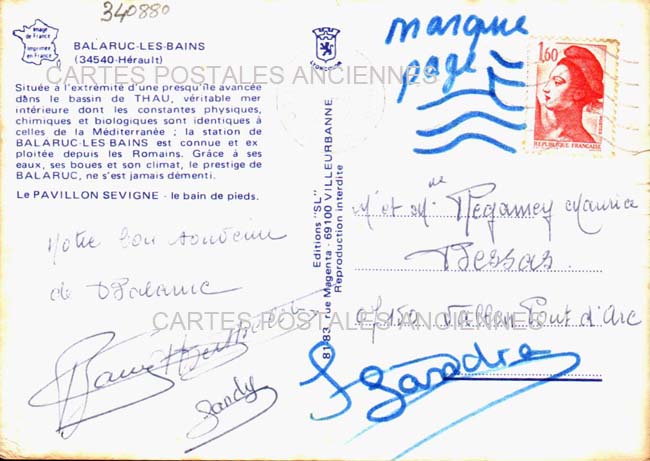 340880
Image
de France
Imprimée
en France
BALARUC-LES-BAINS
(34540-Hérault)
LYONCOLOR
marque
page
1,60
REPUBLIQUE FRANÇAISE
CARTES POSTALES ANCIENNES
Située à l'extrémité d'une presqu'île avancée
dans le bassin de THAU, véritable mer
intérieure dont les constantes physiques,
chimiques et biologiques sont identiques à
celles de la Méditerranée ; la station de
BALARUC-LES BAINS est connue et ex
ploitée depuis les Romains. Grâce à ses
eaux, ses boues et son climat, le prestige de
BALARUC, ne s'est jamais démenti.
Le PAVILLON SEVIGNE - le bain de pieds.
Editions "SL"
81-83, rue Magenta - 69100 VILLEURBANNE
Reproduction interdite
M et Me Regamey Maurice
Bessas
07150 Vallon Pont d'Arc
Notre bon souvenir
de Balaruc
CARTES POSTALES ANCIENNES
Sandy
Sandra